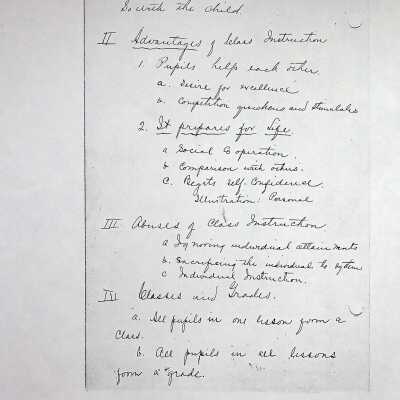 So with the child.
II Advantages of Class Instruction
1. Pupils help each other.
a. Desire for excellence
b. Competition quickens and stimulates
2. It prepares for Life.
a Social Coöperation.
b Comparison with others.
C. Begets self-Confidence.
Illustration: Personal
III Abuses of Class Instruction.
a Ignoring individual attainments
b. Sacrificing the individual to system
c Individual Instruction.
Classes and Grades.
a. All pupils in one lesson form a
Class.
b. All pupils in all lessons
form a "grade."